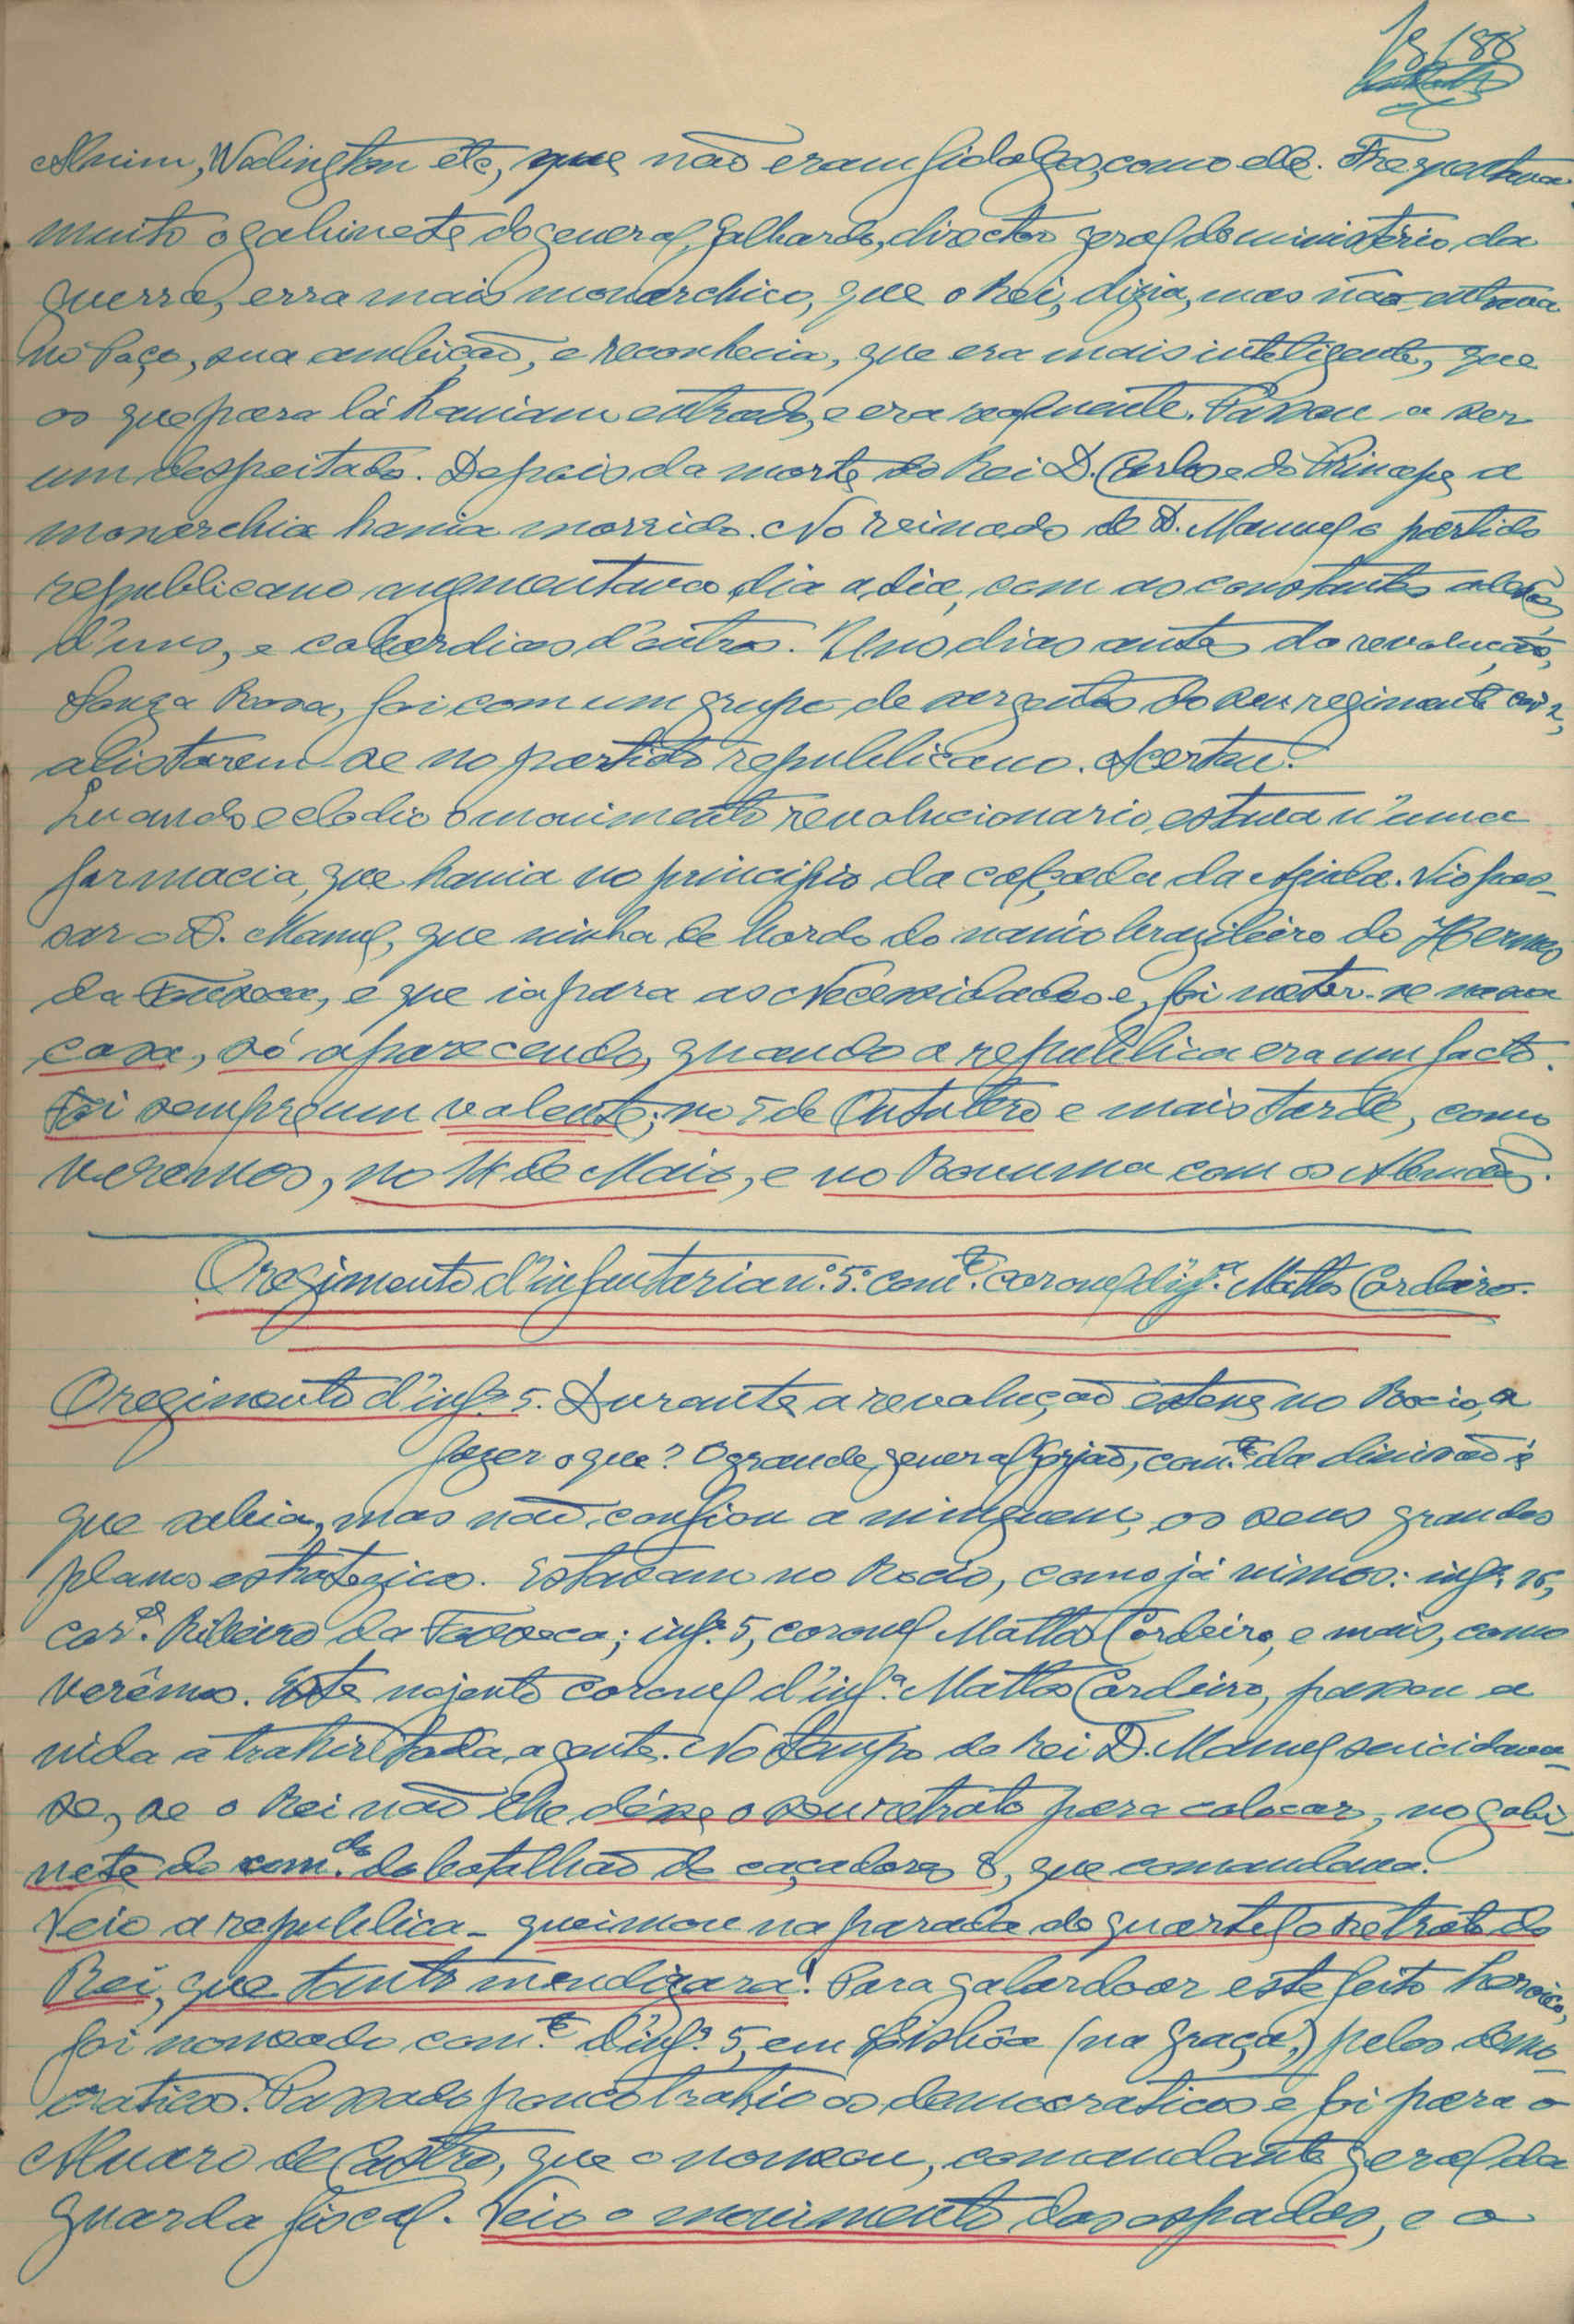 188
Alvim, Wadington etc, que não eram fidalgos, como elle. Frequentava
muito o gabinete do general Galhardo, director geral do ministério da
guerra, erra mais monarchico, que o Rei, dizia, mas não entrava
no Paço, sua ambição, e reconhecia, que era mais inteligente, que
os que para lá haviam entrado, e era realmente. Passou a ser
um despeitado. Depois da morte do Rei D. Carlos e do Principe a
monarchia havia morrido. No reinado de D. Manuel o partido
republicano augmentava dia a dia, com as constantes
d'uns, e cobardias d'outros. Uns dias antes da revolução,
Souza Rosa, foi com um grupo de sargentos do seu regimento cav. 2,
alistarem se no partido republicano. Acertou!
Quando eclodio o movimento revolucionario, estava n'uma
farmacia, que havia no principio da calçada da Ajuda. Vio pas-
sar o D. Manuel, que vinha de bordo do navio brazileiro do Hermes
da Fonseca, e que ia para as Necessidades e, foi meter-se na sua
casa, só aparecendo, quando a republica era um facto.
Foi sempre um valente; no 5 de Outubro e mais tarde, como
veremos, no 14 de Maio, e no Rovuma com os Alemães.
O regimento d'infantaria nº. 5. comte. coronel d'infa. Mattos Cordeiro.
O regimento d'infa. 5. Durante a revolução esteve no Rocio, a
fazer o que? O grande general Gorjão, comte. da divisão é
que sabia, mas não confiou a ninguem, os seus grandes
planos estrategicos. Estavam no Rocio, como já vimos: infa. 16,
corel. Ribeiro da Fonseca; infa. 5, coronel Mattos Cordeiro, e mais, como
verêmos. Este nojento coronel d'infa. Mattos Cordeiro, passou a
vida a trahir toda a gente. No tempo do Rei D. Manuel suicidava-
se, se o Rei não lhe désse o seu retrato para colocar, no gabi-
nete do comdo. do batalhão de caçadores 8, que comandava.
Veio a republica - queimou na parada do quartel o retrato do
Rei, que tanto mendigara! Para galardoar este feito heroico,
foi nomeado comte. d'infa. 5, em Lisbôa (na Graça,) pelos demo-
craticos. Passado pouco trahio os democraticos e foi para o
Alvaro de Castro, que o nomeou, comandante geral da
guarda fiscal. Veio o movimento das espadas, e o